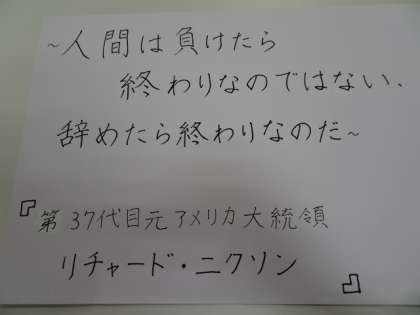 ~人間は負けたら
終わりなのではない、
辞めたら終わりなのだ~
『第37代目元アメリカ大統領
リチャード・ニクソン』